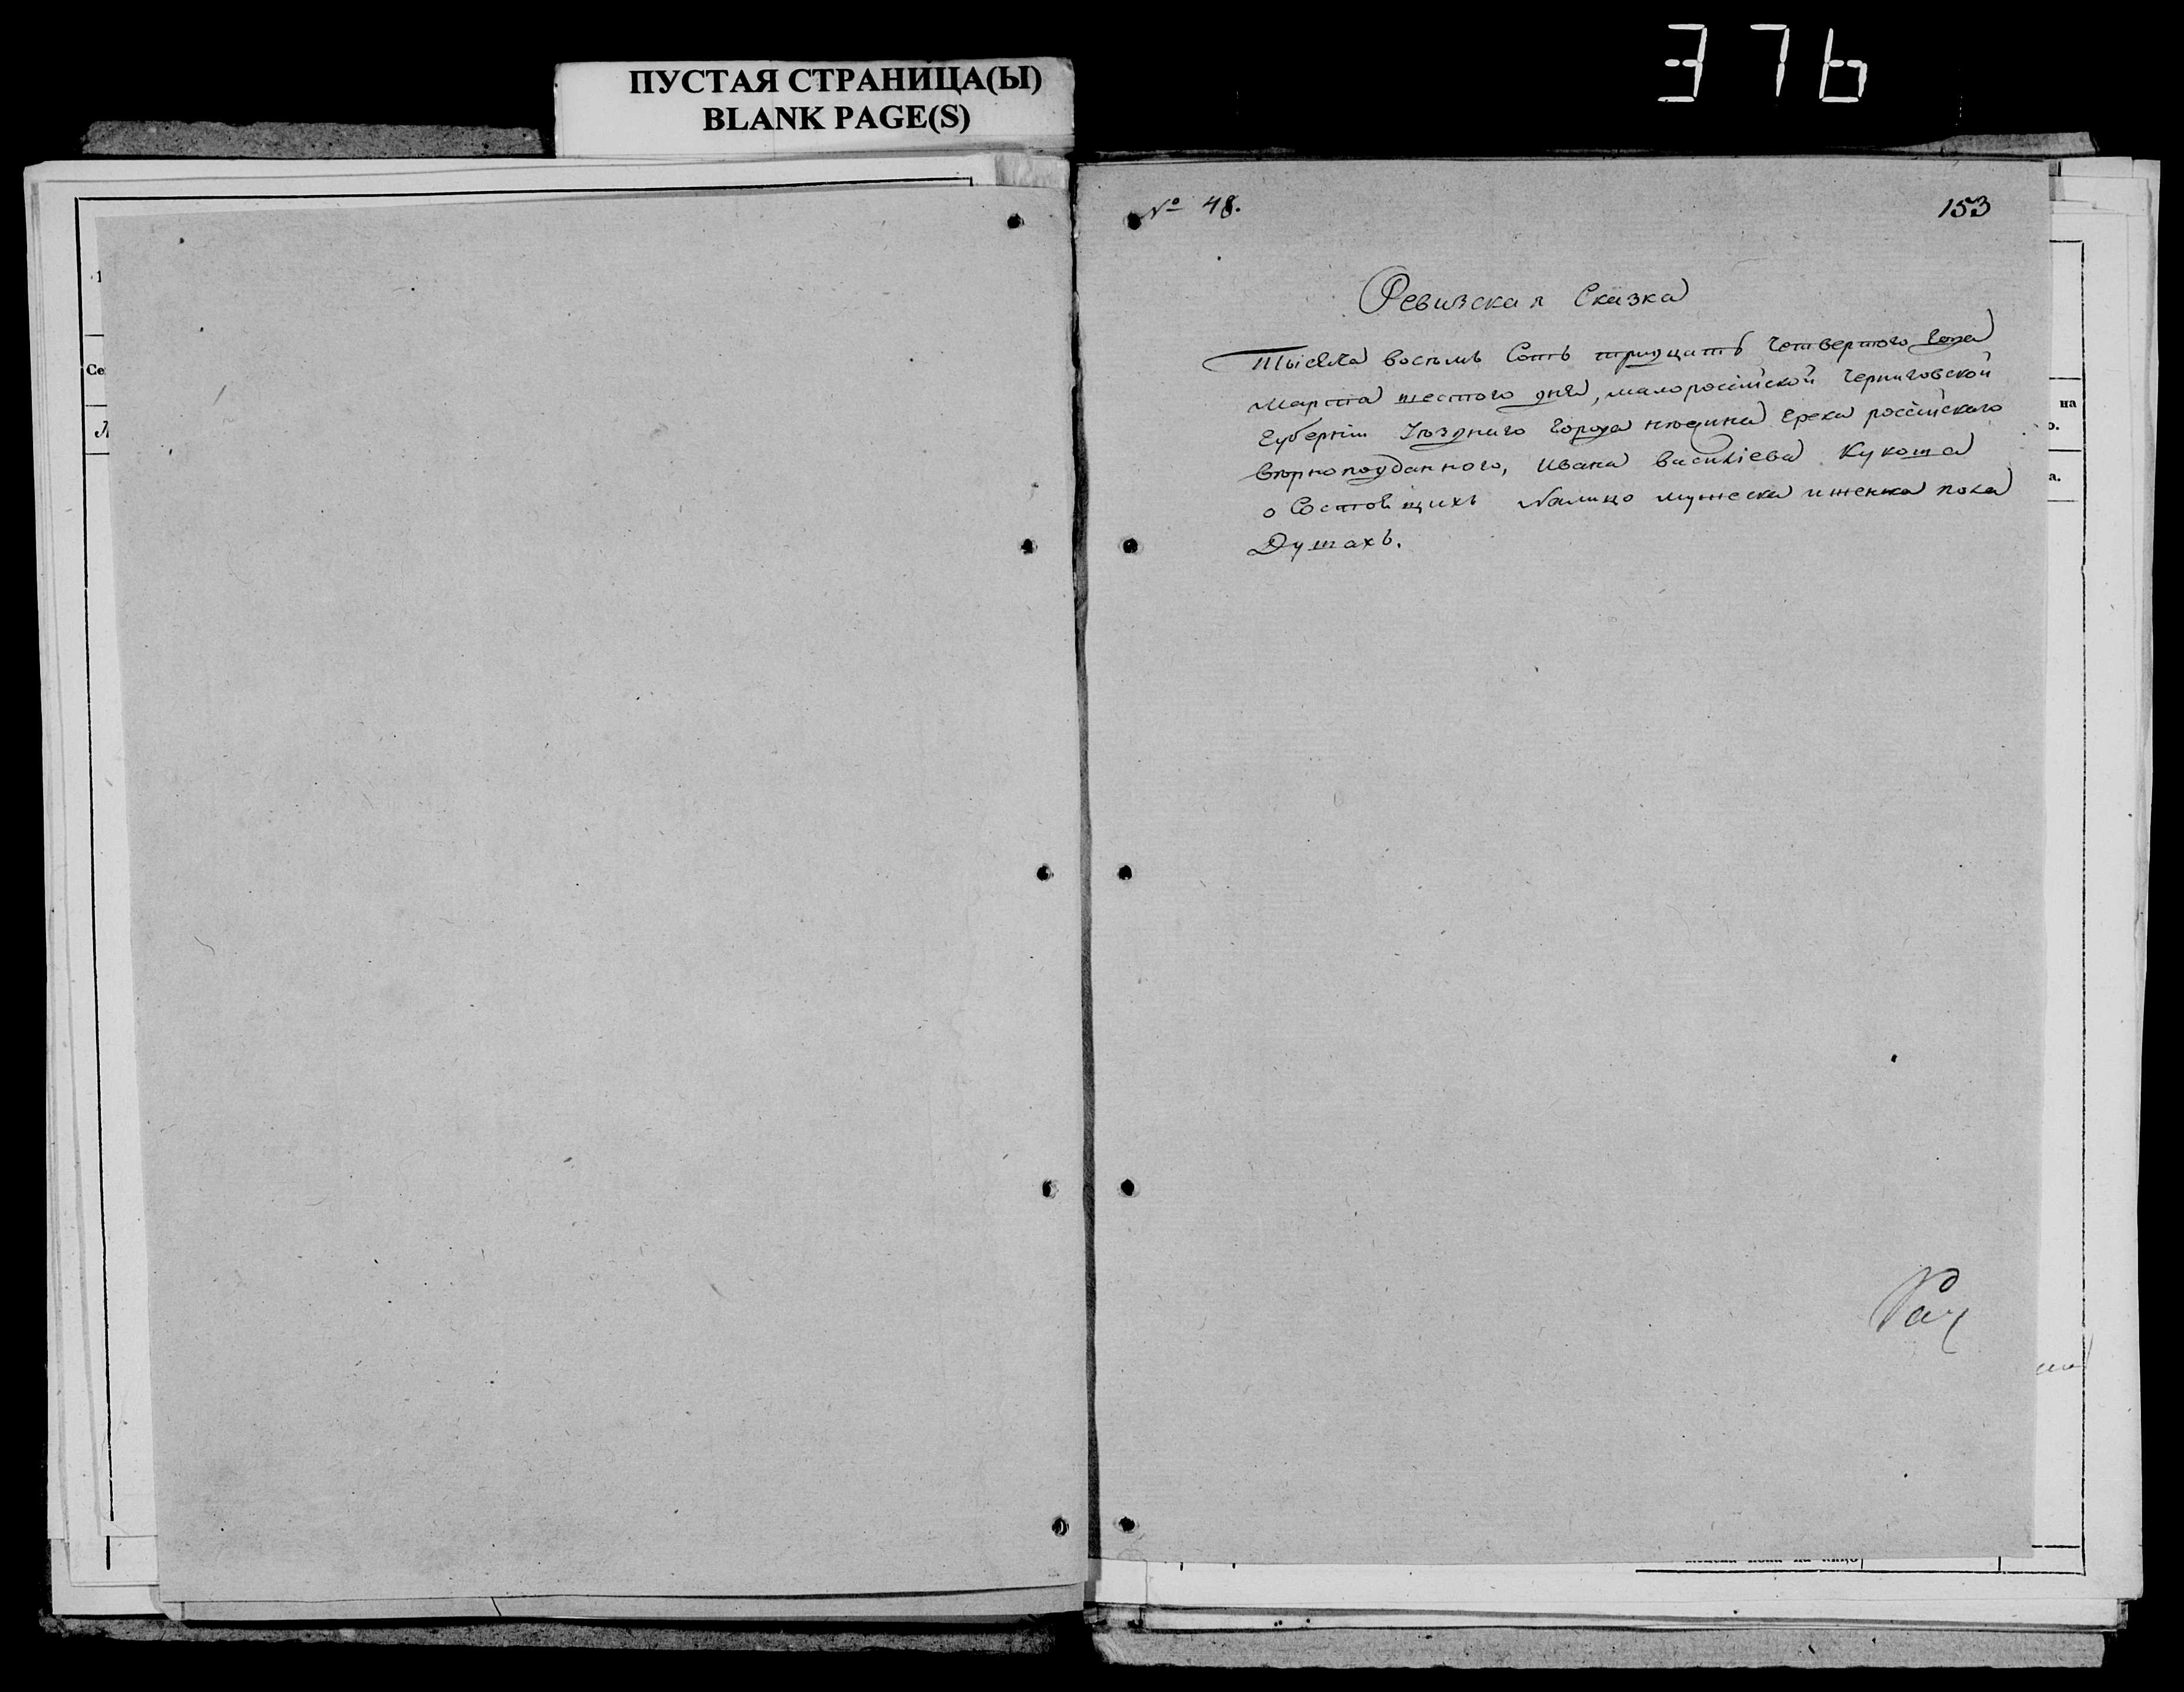 ПУСТАЯ СТРАНИЦА(Ы)
BLANK PAGE(S)
376
№ 48.
153
Ревизская Сказка
Тысяча восемь Сотъ тридцать четвертого Года
марта шестого дня, малороссійской черниговской
Губерніи Уѣздного Города нѣжина Грека россійскаго
вѣрноподданного, Ивана василіева Кукоша
о Состоящихъ Налицо мужеска и женска пола
Душахъ.
на
о.
а.